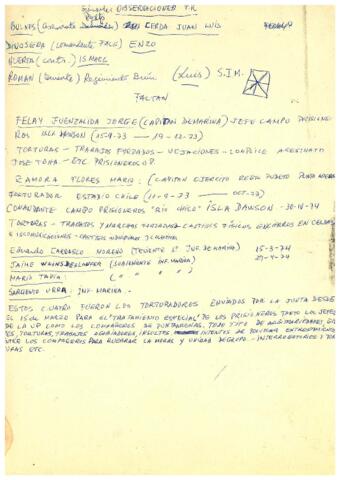 OBSERVACIONES T.R.
BULNES (Comandante CERDA JUAN LUIS
DINOSERA (comandante FACH) ENZO
HUERTA (contr.) ISMAEL
ROMAN (teniente) Regimiento Buin (Luis) S.I.M.
FALTAN
FELAY FUENZALIDA JORGE (CAPITAN DE MARINA) JEFE CAMPO PRISIONE-
ROS ISLA DAWSON (15-9-73 — 19-12-73)
TORTURAS - TRABAJOS FORZADOS - VEJACIONES - COMPLICE ASESINATO
JOSE TOHA - ETC PRISIONEROS
ZAMORA FLORES MARIO: (CAPITAN EJERCITO REGTO PUDETO PUNTA ARENAS
TORTURADOR ESTADIO CHILE (11-9-73 — OCT-73)
COMANDANTE CAMPO PRISIONEROS "RIO CHICO" ISLA DAWSON - 30-IV-74
TORTURAS - TRABAJOS Y MARCHAS FORZADAS CASTIGOS FISICOS ENCIERROS EN CELDAS
INCOMUNICACIONES - CASTIGOS INDIVIDUAL Y COLECTIVA
EDUARDO CARRASCO MORENO (TENIENTE INF. DE MARINA) 15-3-74
JAIME (SUBTENIENTE INF. MARINA) 27-4-74
MARIO TAPIA: ( " " " " )
SARGENTO URRA: INF. MARINA.
ESTOS CUATRO FUERON LOS TORTURADORES ENVIADOS POR LA JUNTA DESDE
EL 15 DE MARZO PARA EL "TRATAMIENTO ESPECIAL" DE LOS PRISIONEROS TANTO LOS JEFES
DE LA UP COMO LOS COMPAÑEROS DE PUNTARENAS, TODO TIPO DE ARBITRARIEDADES
TORTURAS, TRABAJOS AGOTADORES, INSULTOS, INTENTOS DE PROVOCAR ENTREDIMIENTO
ENTRE LOS COMPAÑEROS PARA QUEBRAR LA MORAL Y UNIDAD DE GRUPO - INTERROGATORIOS Y TOR-
TURAS ETC.